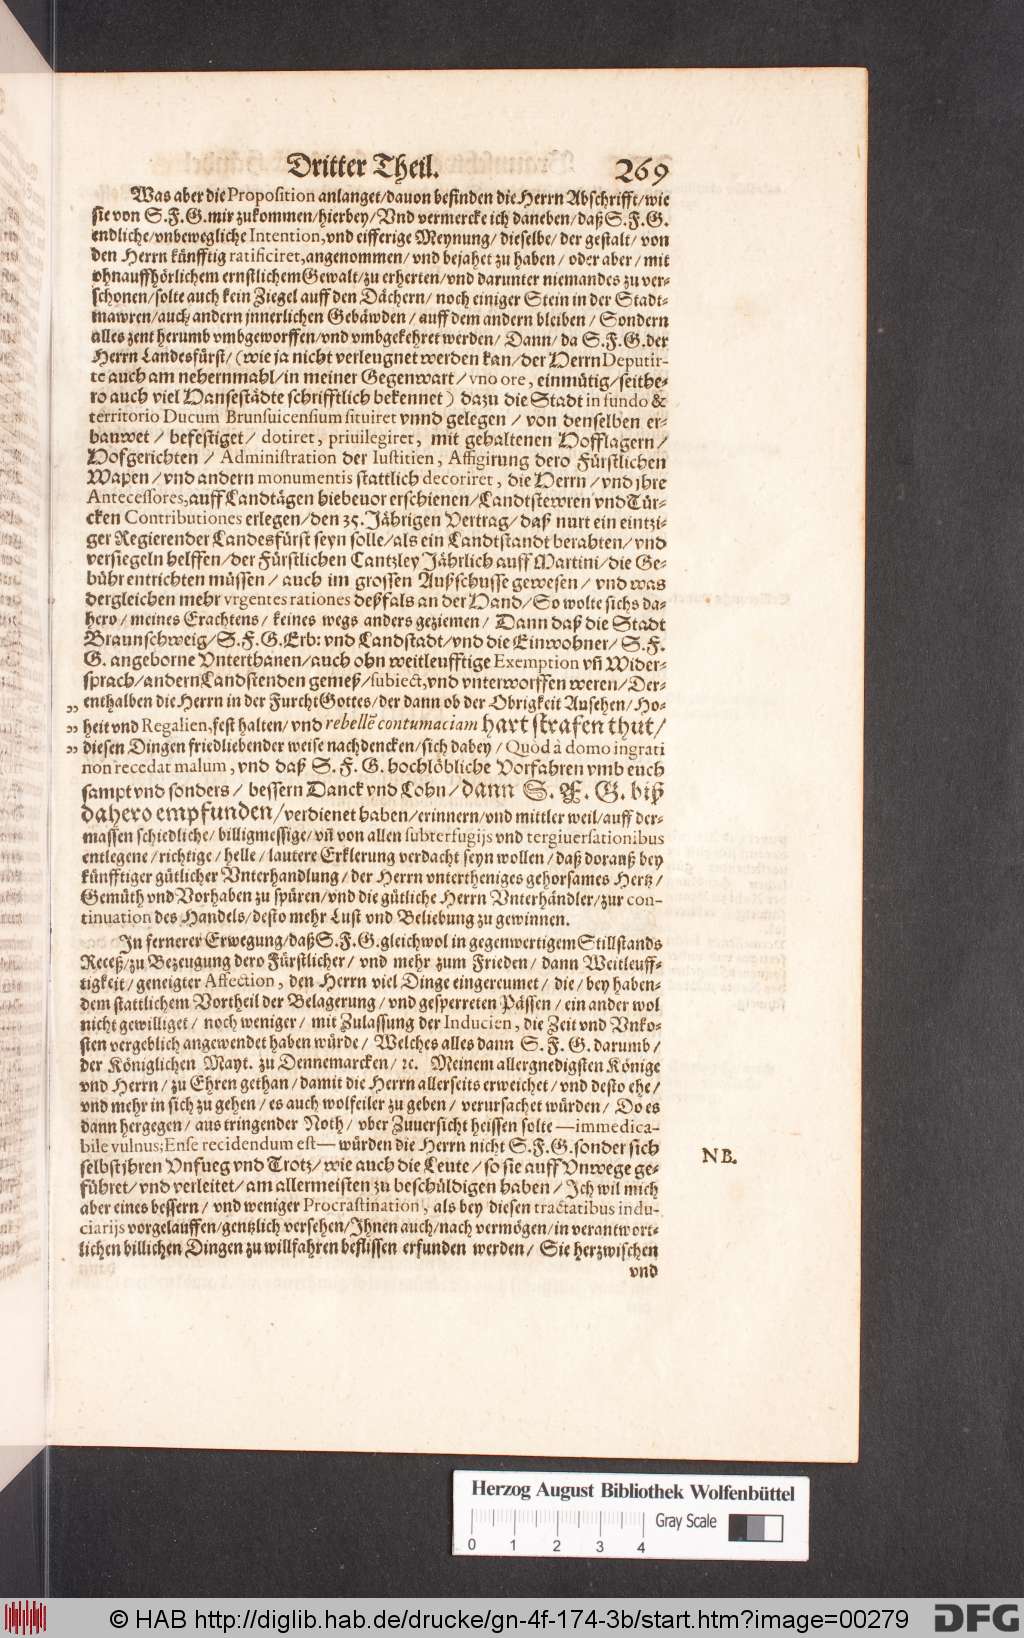 Dritter Theil. 269
Was aber die Proposition anlanget/dauon befinden die Herrn Abschrifft/wie
sie von S.F.G.mir zukommen/hierbey/Vnd vermercke ich daneben/daß S.F.G.
endliche/vnbewegliche Intention,vnd eifferige Meynung/ dieselbe/ der gestalt/ von
den Herrn künfftig ratificiret,angenommen/ vnd bejahet zu haben/ oder aber/ mit
ohnauffhörlichem ernstlichem Gewalt/zu erherten/vnd darunter niemandes zu ver-
schonen/solte auch kein Ziegel auff den Dächern/ noch einiger Stein in der Stadt-
mawren/auch andern jnnerlichen Gebäwden/ auff dem andern bleiben/ Sondern
alles zent herumb vmbgeworffen/vnd vmbgekehret werden/ Dann/ da S.F.G.der
Herrn Landesfürst/ (wie ja nicht verleugnet werden kan/der Herrn Deputir-
te auch am nehernmahl/in meiner Gegenwart/ vno ore, einmütig/seithe-
ro auch viel Hansestädte schrifftlich bekennet) dazu die Stadt in fundo &
territorio Ducum Brunsuicensium situiret vnnd gelegen / von denselben er-
bauwet / befestiget / dotiret, priuilegiret, mit gehaltenen Hofflagern/
Hofgerichten / Administration der Iustitien, Affigirung dero Fürstlichen
Wapen/vnd andern monumentis stattlich decoriret, die Herrn/vnd jhre
Antecessores,auff Landtägen hiebeuor erschienen/Landtstewren vnd Tür-
cken Contributiones erlegen/den 35.Jährigen Vertrag/daß nurt ein eintzi-
ger Regierender Landesfürst seyn solle/als ein Landtstandt berahten/vnd
versiegeln helffen/der Fürstlichen Cantzley Jährlich auff Martini/die Ge-
bühr entrichten müssen / auch im grossen Außschusse gewesen / vnd was
dergleichen mehr vrgentes rationes deßfals an der Hand/So wolte sichs da-
hero/meines Erachtens/ keines wegs anders geziemen/ Dann daß die Stadt
Braunschweig/S.F.G.Erb: vnd Landstadt/vnd die Einwohner/ S.F.
G. angeborne Vnterthanen/auch ohn weitleufftige Exemption vñ Wider-
sprach/andern Landstenden gemeß/subiect,vnd vnterworffen weren/Der-
enthalben die Herrn in der Furcht Gottes/der dann ob der Obrigkeit Ansehen/Ho-
heit vnd Regalien,fest halten/ vnd rebellē contumaciam hart strafen thut/
diesen Dingen friedliebender weise nachdencken/sich dabey/ Quòd à domo ingrati
non recedat malum, vnd daß S. F. G. hochlöbliche Vorfahren vmb euch
sampt vnd sonders/ bessern Danck vnd Lohn/dann S. F. G. biß
dahero empfunden/verdienet haben/erinnern/vnd mittler weil/auff der-
massen schiedliche/billigmessige/vñ von allen subterfugijs vnd tergiuersationibus
entlegene/richtige/helle/lautere Erklerung verdacht seyn wollen/daß dorauß bey
künfftiger gütlicher Vnterhandlung/ der Herrn vntertheniges gehorsames Hertz/
Gemüth vnd Vorhaben zu spüren/vnd die gütliche Herrn Vnterhändler/zur con-
tinuation des Handels/desto mehr Lust vnd Beliebung zu gewinnen.
In fernerer Erwegung/daß S.F.G.gleichwol in gegenwertigem Stillstands
Receß/zu Bezeugung dero Fürstlicher/ vnd mehr zum Frieden/ dann Weitleuff-
tigkeit/geneigter Affection, den Herrn viel Dinge eingereumet/ die/ bey haben-
dem stattlichem Vortheil der Belagerung/ vnd gesperreten Pässen/ ein ander wol
nicht gewilliget/ noch weniger/ mit Zulassung der Inducien, die Zeit vnd Vnko-
sten vergeblich angewendet haben würde/ Welches alles dann S. F. G. darumb/
der Königlichen Mayt. zu Dennemarcken/ ꝛc. Meinem allergnedigsten Könige
vnd Herrn/ zu Ehren gethan/damit die Herrn allerseits erweichet/ vnd desto ehe/
vnd mehr in sich zu gehen/ es auch wolfeiler zu geben/ verursachet würden/ Do es
dann hergegen/ aus tringender Noth/ vber Zuuersicht heissen solte —immedica-
bile vulnus;Ense recidendum est— würden die Herrn nicht S.F.G.sonder sich
NB.
selbst jhren Vnfueg vnd Trotz/ wie auch die Leute/ so sie auff Vnwege ge-
führet/vnd verleitet/am allermeisten zu beschüldigen haben/ Ich wil mich
aber eines bessern/ vnd weniger Procrastination, als bey diesen tractatibus indu-
ciarijs vorgelauffen/gentzlich versehen/Ihnen auch/nach vermögen/in verantwort-
lichen billichen Dingen zu willfahren beflissen erfunden werden/ Sie herzwischen
vnd
Herzog August Bibliothek Wolfenbüttel
Gray Scale
0 1 2 3 4
© HAB http://diglib.hab.de/drucke/gn-4f-174-3b/start.htm?image=00279 DFG